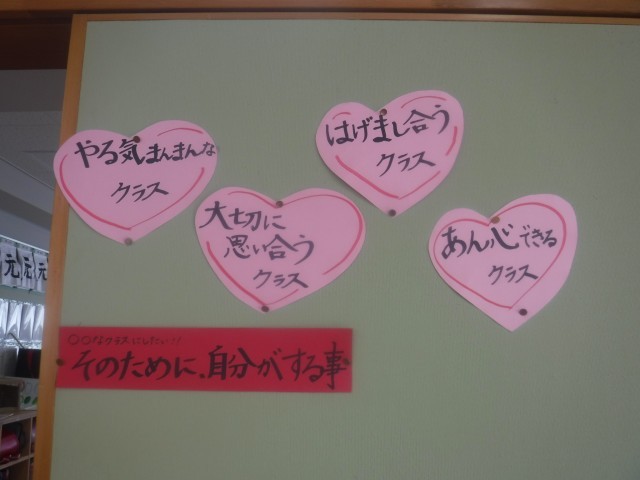 やる気まんまんな
クラス
はげまし合う
クラス
大切に
思い合う
クラス
あん心できる
クラス
○○なクラスにしたい!!
そのために、自分がする事
元
元
元